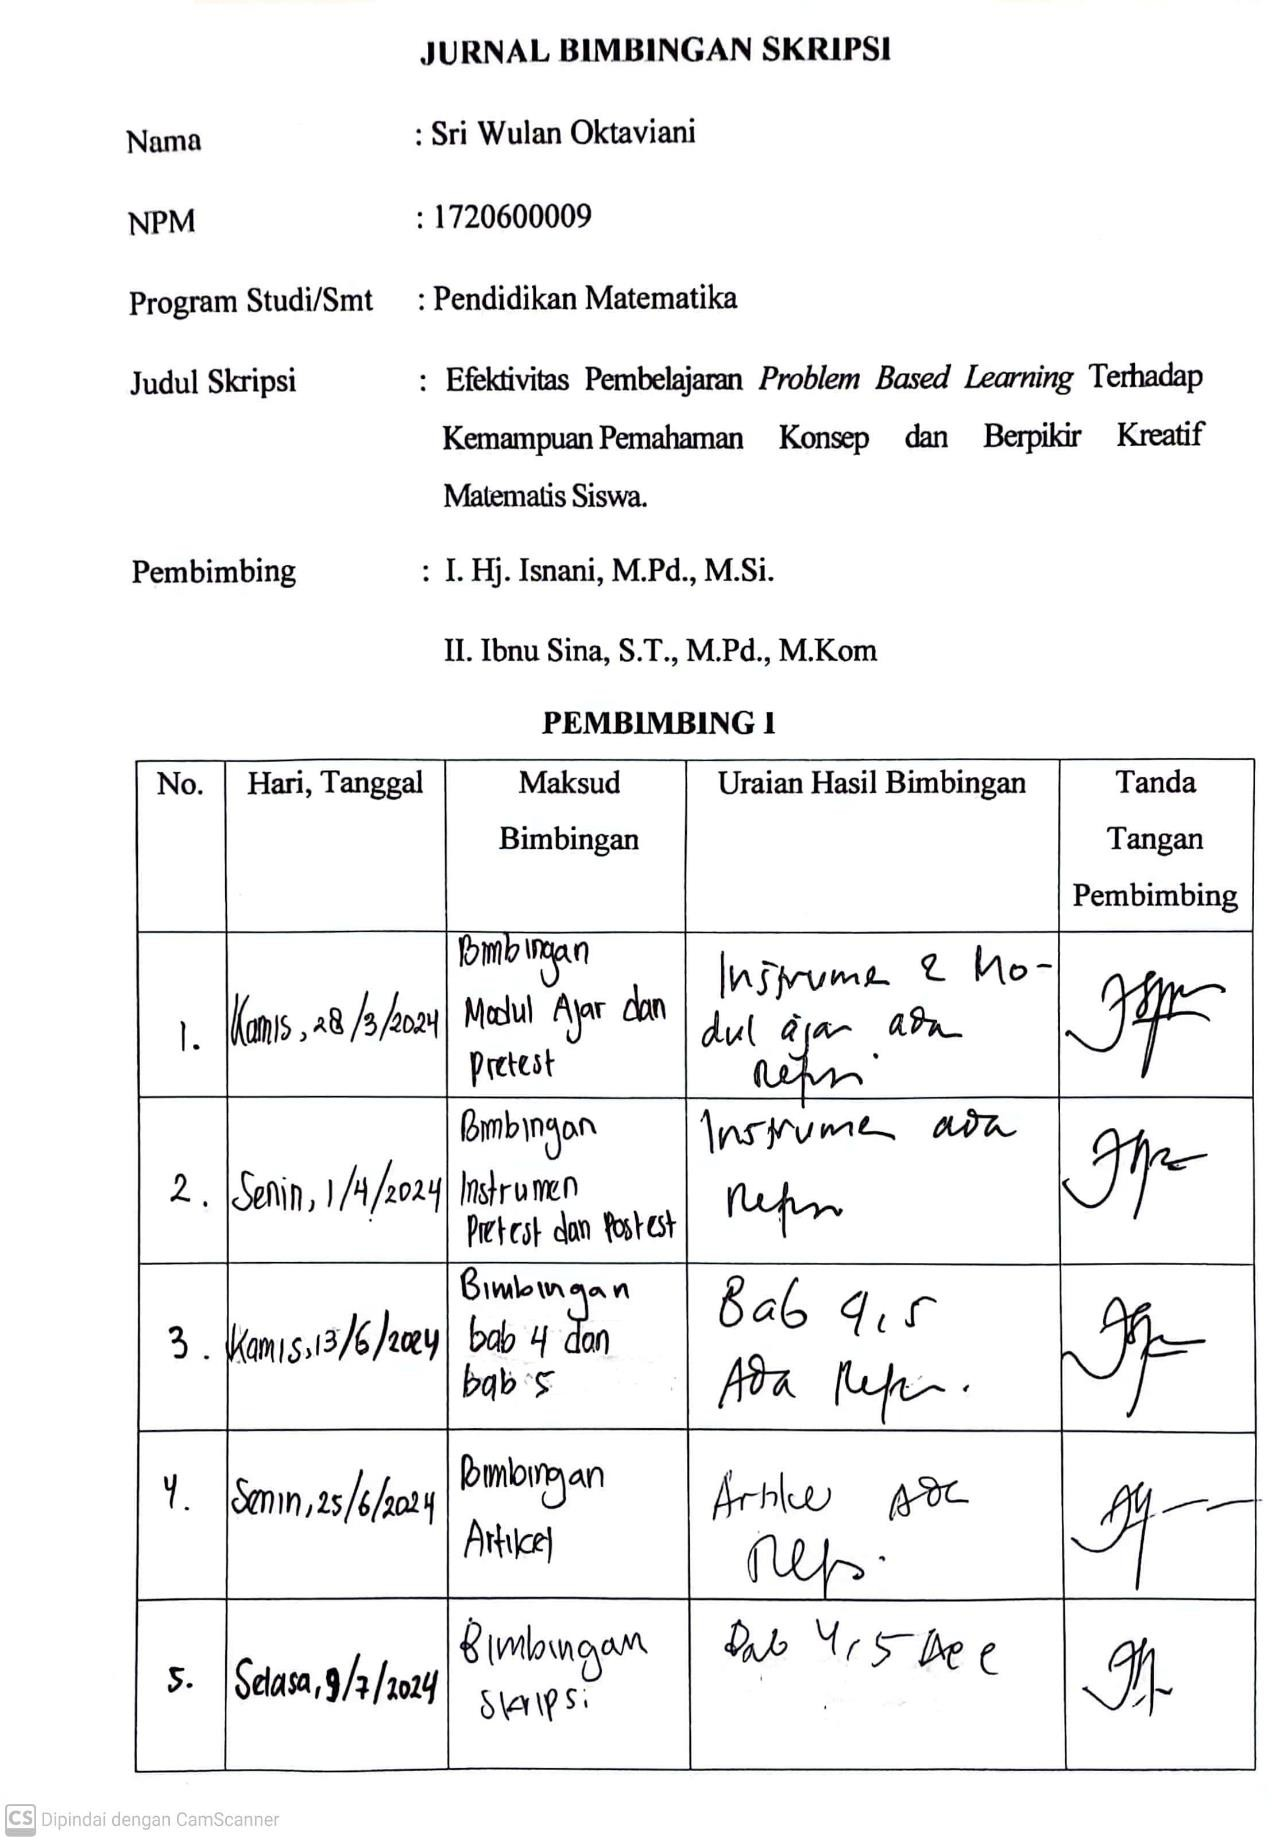 JURNAL BIMBINGAN SKRIPSI
Nama : Sri Wulan Oktaviani
NPM : 1720600009
Program Studi/Smt : Pendidikan Matematika
Judul Skripsi : Efektivitas Pembelajaran Problem Based Learning Terhadap
Kemampuan Pemahaman Konsep dan Berpikir Kreatif
Matematis Siswa.
Pembimbing : I. Hj. Isnani, M.Pd., M.Si.
II. Ibnu Sina, S.T., M.Pd., M.Kom
PEMBIMBING 1
No. Hari, Tanggal Maksud Uraian Hasil Bimbingan Tanda
Bimbingan Tangan
Pembimbing
Bimbingan
Modul Ajar dan
Pretest
1. Kamis, 28/3/2024
Instrume & Mo-
dul ajar ada
2. Senin, 1/4/2024
Bimbingan
Instrumen
Pretest dan Postest
Instrumen ada
3. Kamis, 13/6/2024
Bimbingan
bab 4 dan
bab 5
Bab 4,5
Ada
4. Senin, 25/6/2024
Bimbingan
Artikel
Artikel
5. Selasa, 9/7/2024
Bimbingan
Skripsi
Bab 4,5 Acc
CS Dipindai dengan CamScanner